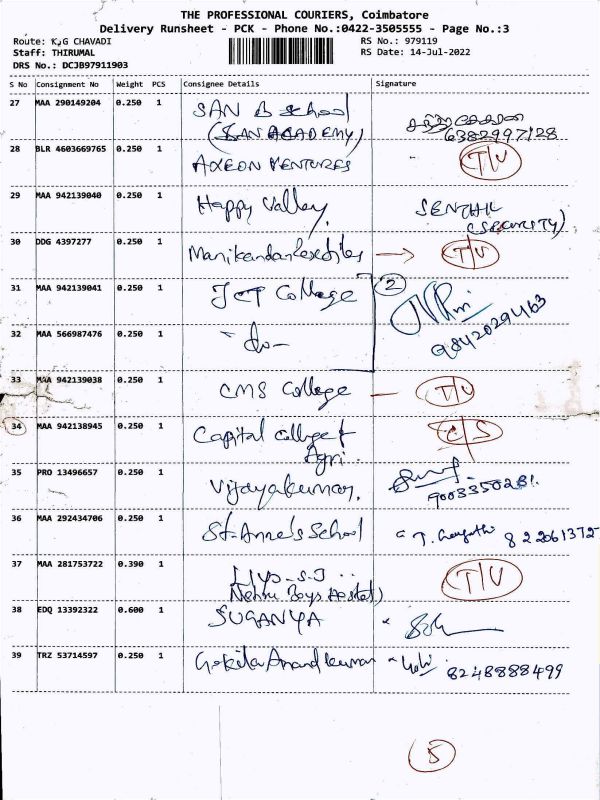 THE PROFESSIONAL COURIERS, Coimbatore
Delivery Runsheet - PCK - Phone No.:0422-3505555 - Page No.:3
Route: K.G CHAVADI
RS No.: 979119
Staff: THIRUMAL
RS Date: 14-Jul-2022
DRS No.: DCJB97911903
S No Consignment No Weight PCS Consignee Details Signature
27 MAA 290149204 0.250 1 SAN B School
(SAN ACADEMY) 6382997128
28 BLR 4603669765 0.250 1 AXEON VENTURES T/U
29 MAA 942139040 0.250 1 Happy Valley. SENTHIL
(SECURITY)
30 DDG 4397277 0.250 1 Manikandan Textiles → T/U
31 MAA 942139041 0.250 1 JCT College 2
9842029463
32 MAA 566987476 0.250 1 -do-
33 MAA 942139038 0.250 1 CMS College — T/U
34 MAA 942138945 0.250 1 Capital college & C/S
Agri.
35 PRO 13496657 0.250 1 Vijayakumar.
36 MAA 292434706 0.250 1 St. Anne's School
37 MAA 281753722 0.390 1 T/U
Nehru Boys Hostel)
38 EDQ 13392322 0.600 1 SUGANYA
39 TRZ 53714597 0.250 1 Gokila Anandkumar 8248888499
5